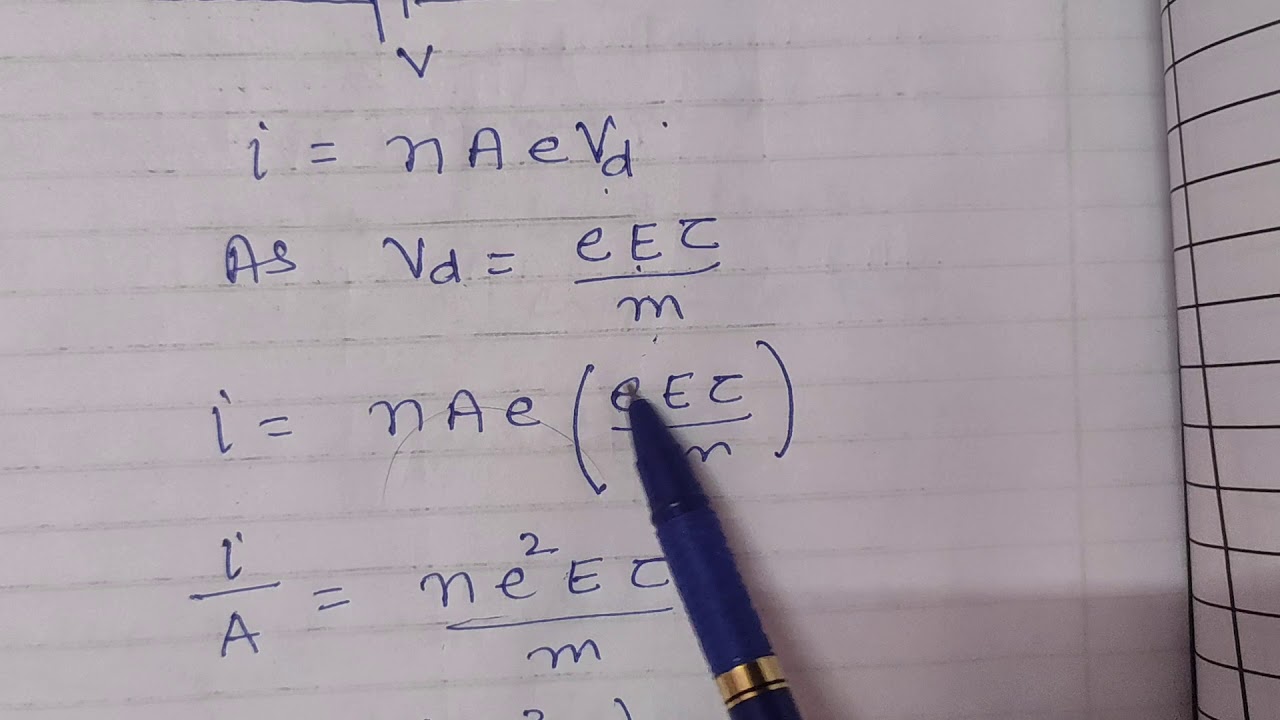 V
i = nAeVd
As Vd = eEτ/m
i = nAe(eEτ/m)
i/A = ne²Eτ/m